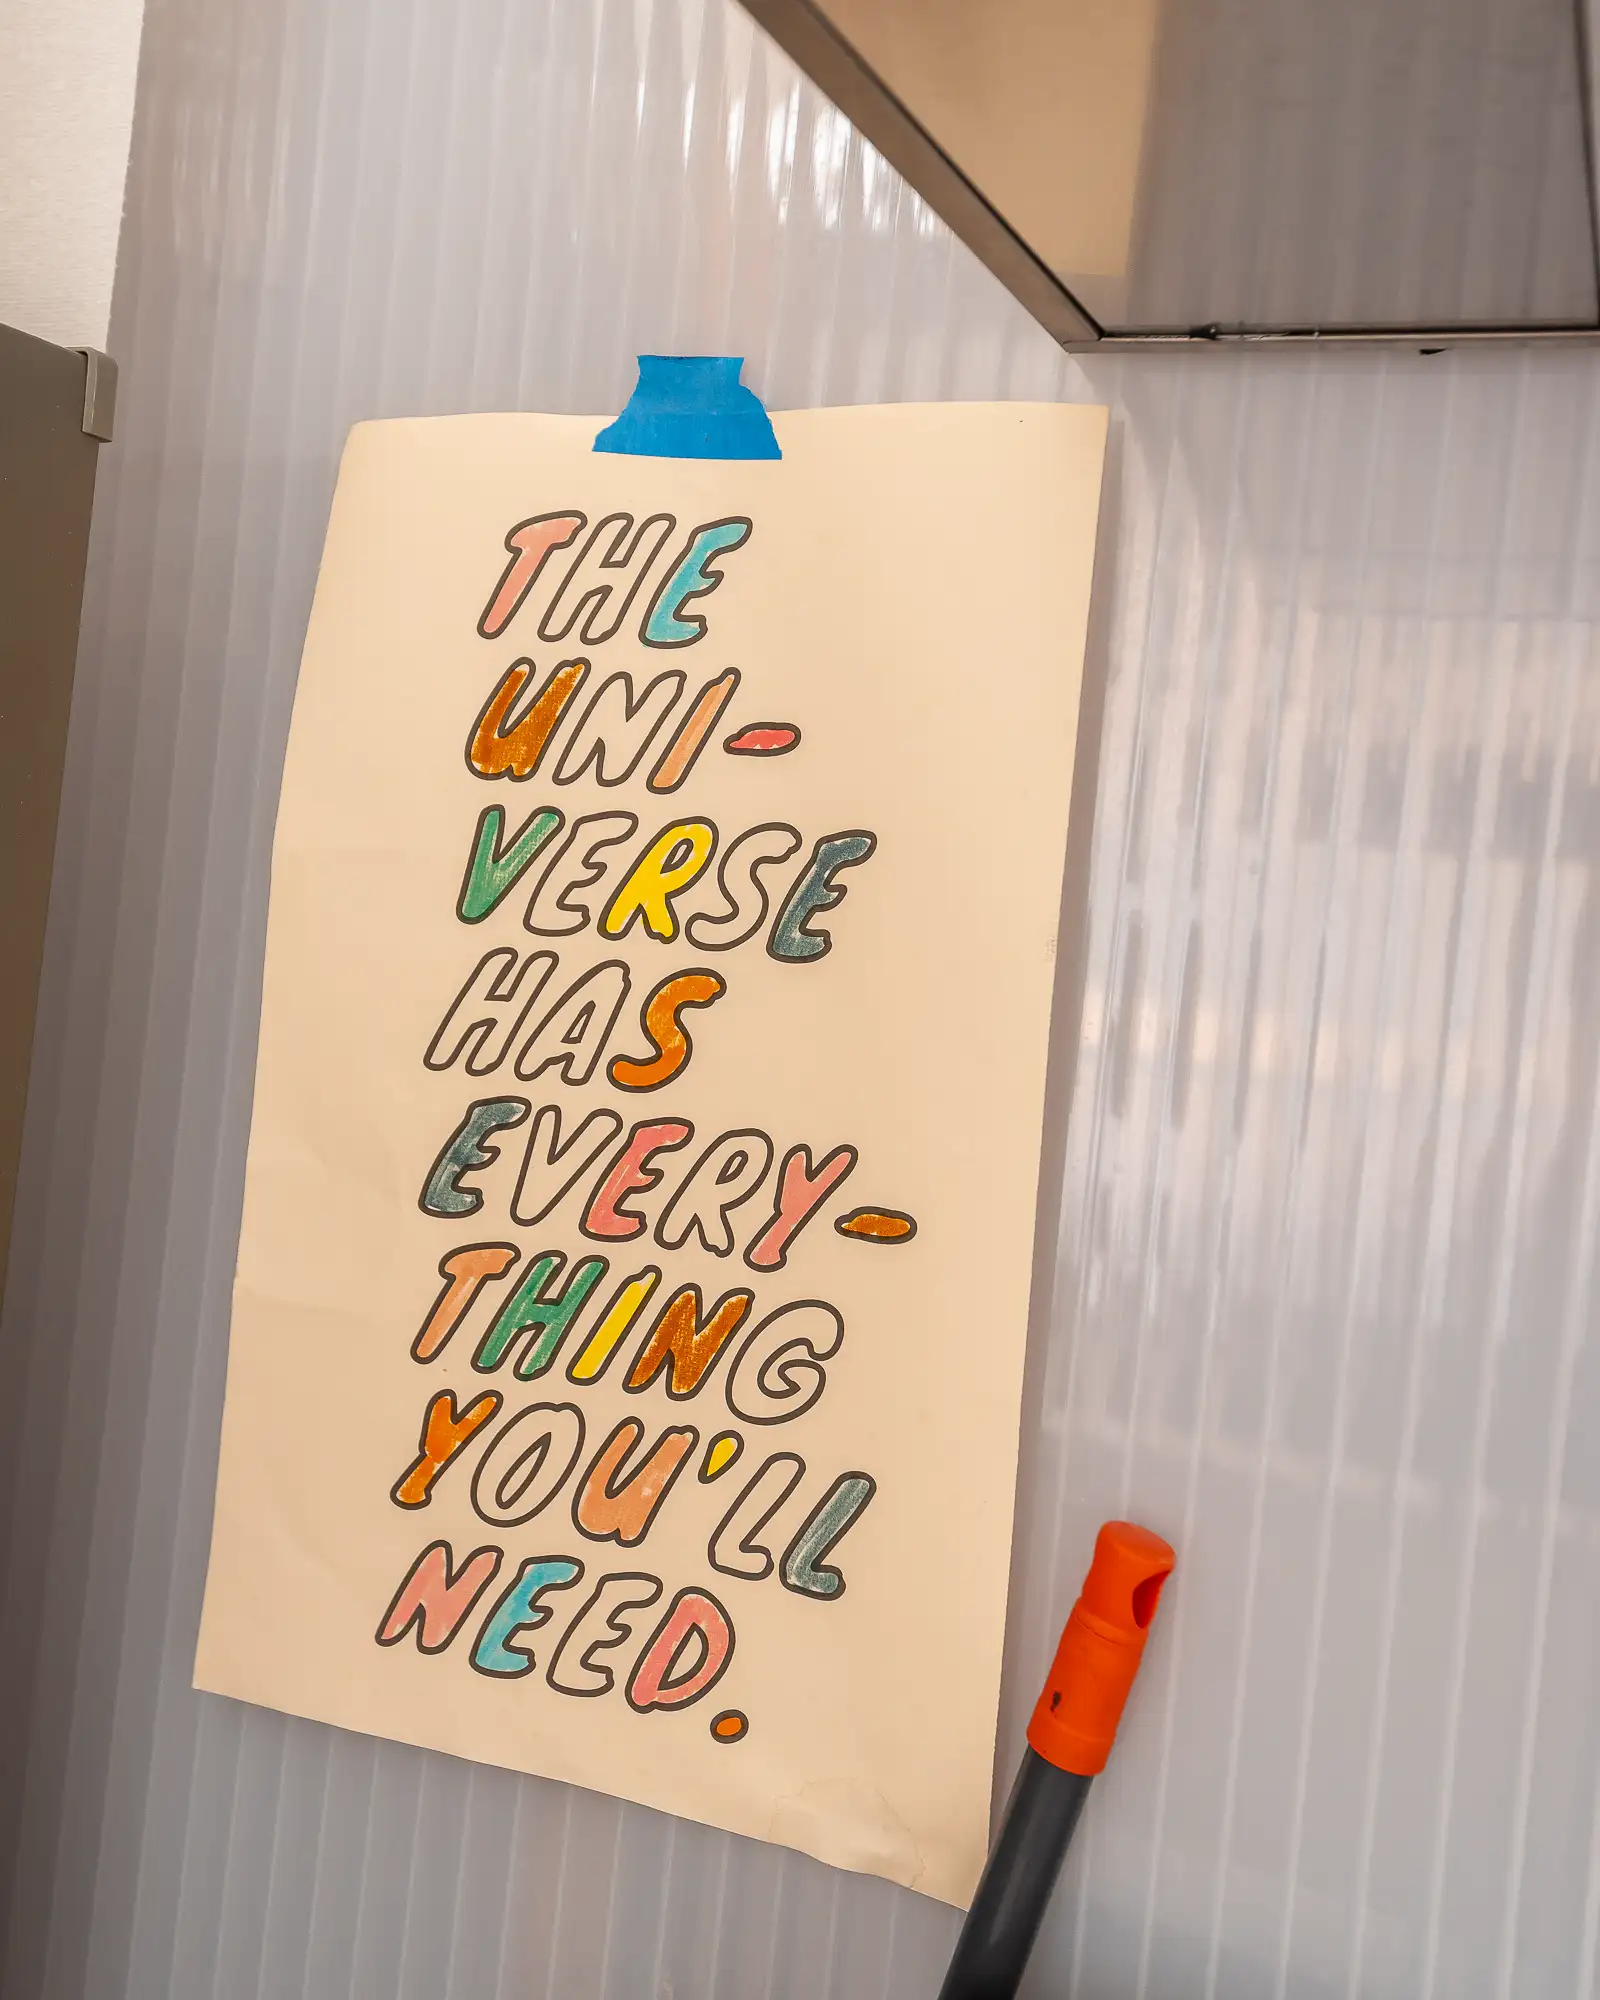 THE
UNI-
VERSE
HAS
EVERY-
THING
YOU'LL
NEED.